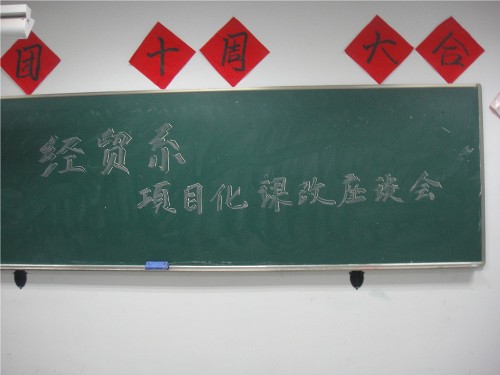 团 十周 大合
经贸系
项目化课改座谈会